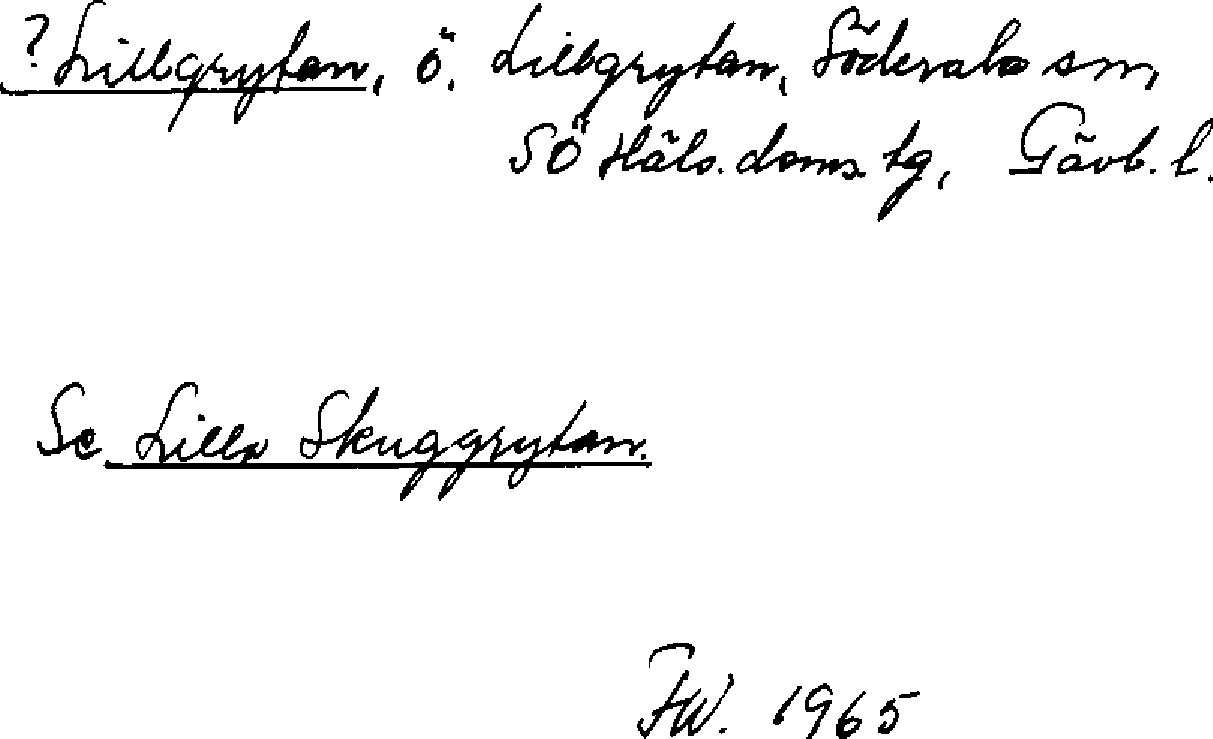 ? Lillgrytan, ö. Lillgrytan, Söderala sn,
SÖ Häls. doms. tg, Gävb. l.
Se Lilla Skuggrytan.
FW. 1965